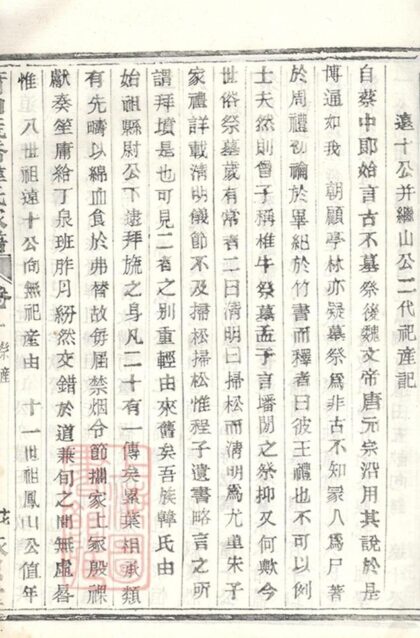 遠十公并繼山公二代祀產記
自蔡中郎始言古不墓祭後魏文帝唐元宗沿用其說於是
博通如我 朝顧亭林亦疑墓祭爲非古不知冢人爲尸著
於周禮初禴於畢紀於竹書而釋者曰彼王禮也不可以例
士夫然則曾子稱椎牛祭墓孟子言墦閒之祭抑又何歟今
世俗祭墓歲有常者二曰清明曰掃松而清明爲尤重朱子
家禮詳載清明儀節不及掃松掃松惟程子遺書略言之所
謂拜墳是也可見二者之別重輕由來舊矣吾族韓氏由
始祖縣尉公下逮拜旒之身凡二十有一傳矣累葉相承類
有先疇以綿血食於弗替故每屆禁烟令節攔家上冢殷祼
獻奏笙庸給丁泉班胙月紛然交錯於道兼旬之間無虛晷
惟 八世祖遠十公向無祀產由 十一世祖鳳山公值年